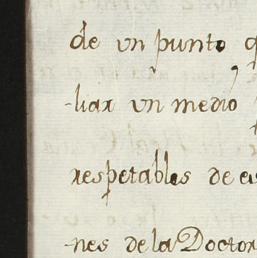 de un punto
-liar un medio
respetables de
-nes de la Doctor